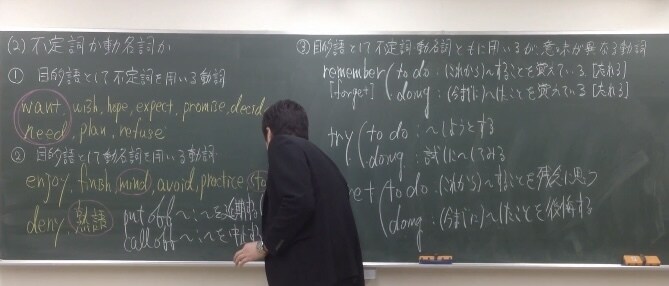 (2) 不定詞か動名詞か
① 目的語として不定詞を用いる動詞
want, wish, hope, expect, promise, decid
need, plan, refuse
② 目的語として動名詞を用いる動詞
enjoy, finish, mind, avoid, practice,
deny, 熟語 put off ～:～を延期する
call off ～:～を中止する
③ 目的語として不定詞、動名詞ともに用いるが、意味が異なる動詞
remember to do:(これから)～することを覚えている[忘れる]
[forget] doing:(今までに)～したことを覚えている[忘れる]
try to do:～しようとする
doing:試しに～してみる
et to do:(これから)～することを残念に思う
doing:(今までに)～したことを後悔する